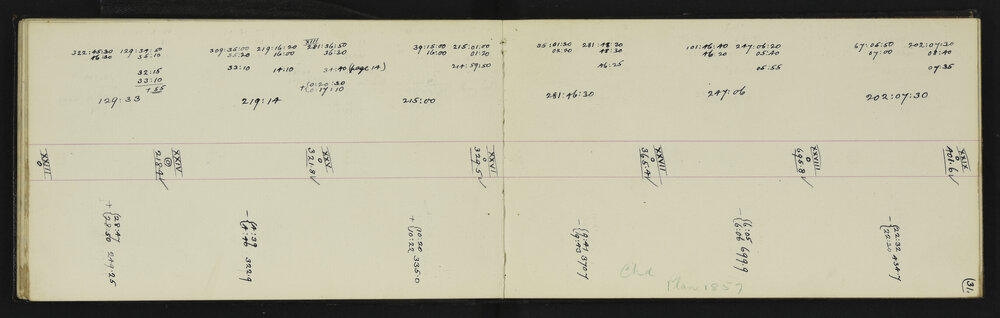 XXIII
322:45:30 129:34:50 309:35:00 219:16:20 281:36:50 39:15:00 215:01:00 35:01:30 281:48:20 101:46:40 247:06:20 67:06:50 202:07:30
46:30 35:10 35:20 16:00 36:30 16:00 01:20 02:20 48:30 46:20 05:40 07:00 08:40
32:15 33:10 14:10 34:40 (page 14) 214:59:50 46:25 05:55 07:35
33:10
+ 55
0:20:30
+0:17:10
129:33 219:14 215:00 281:46:30 247:06 202:07:30
XXIII
0
XXIV
0
218.9
XXV
0
321.8
XXVI
0
329.5
XXVII
0
365.4
XXVIII
0
695.8
XXIX
0
401.6
+ 28:47
28:50 249.25
- 4:39
4:46 322.9
+ 10:20
10:22 335.0
- 9:41
9:43 370.7
- 6:05
6:06 699.9
- 22:32
22:30 434.7
Chd
Plan 1857
31.